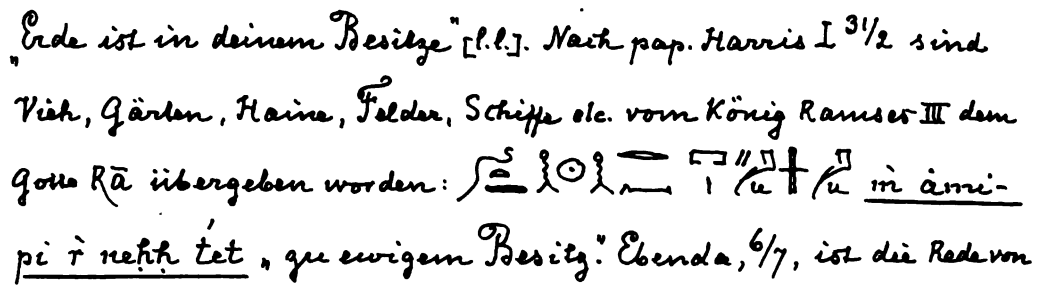 „Erde ist in deinem Besitze" [l.l.]. Nach pap. Harris I 31/2 sind
Vieh, Gärten, Haine, Felder, Schiffe etc. vom König Ramses III dem
Gotte Rā übergeben worden: m åmi-
pi r neḥḥ t́et „zu ewigem Besitz". Ebenda, 6/7, ist die Rede von